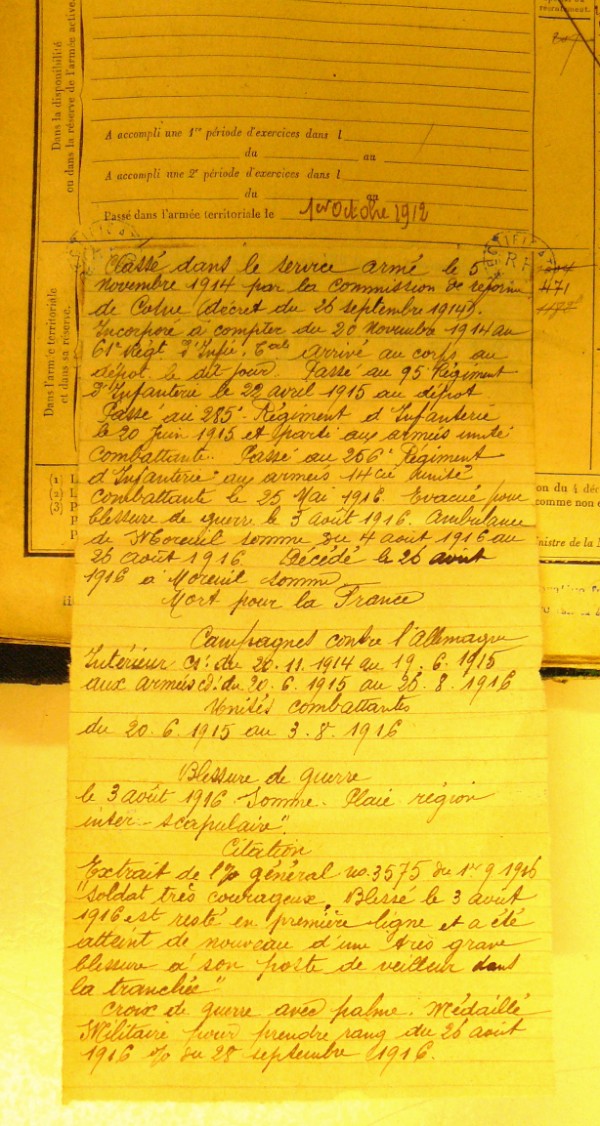 Dans la disponibilité
ou dans la réserve de l'armée active.
A accompli une 1re période d'exercices dans l
du au
A accompli une 2e période d'exercices dans l
du
Passé dans l'armée territoriale le 1er Octobre 1912
Dans l'armée territoriale
et dans sa réserve.
RF
RF
471
Classé dans le service armé le 5
novembre 1914 par la commission de réforme
de (décret du 26 septembre 1914).
Incorporé à compter du 20 novembre 1914 au
61e Régt d'Infie. arrivé au corps au
dépot le dit jour. Passé au 95e Régiment
d'Infanterie le 22 avril 1915 au dépot
Passé au 285e Régiment d'Infanterie
le 20 Juin 1915 et parti aux armées unité
combattante. Passé au 256e Régiment
d'Infanterie aux armées 14 cie unité
combattante le 25 Mai 1916 Evacué pour
blessure de guerre le 3 août 1916. Ambulance
de Moreuil somme du 4 août 1916 au
26 août 1916 Décédé le 26 août
1916 à Moreuil somme
Mort pour la France
Campagnes contre l'allemagne
Intérieur cs. du 20.11.1914 au 19.6.1915
aux armées cd. du 20.6.1915 au 26.8.1916
Unités combattantes
du 20.6.1915 au 3.8.1916
Blessure de guerre
le 3 août 1916 Somme. Plaie région
inter-scapulaire".
Citation
Extrait de l'J/o général no.3575 du 1er 9 1916
"Soldat très courageux. Blessé le 3 août
1916 est resté en première ligne et a été
atteint de nouveau d'une très grave
blessure à son poste de veilleur dans
la tranchée"
Croix de guerre avec palme. Médaille
Militaire pour prendre rang du 26 août
1916 J/o du 28 septembre 1916.
on du 4 déc
comme non
nistre de la